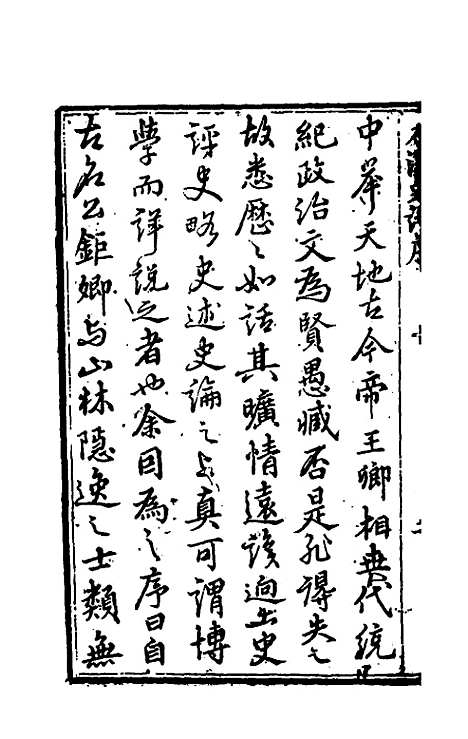 中葬天地古今帝王卿相世代統
紀政治文為賢愚臧否是非得失之
故悉歷歷如話其曠情遠議迥出史
評史略史述史論之上真可謂博
學而詳說之者也余因為之序曰自
古名公鉅卿與山林隱逸之士類無